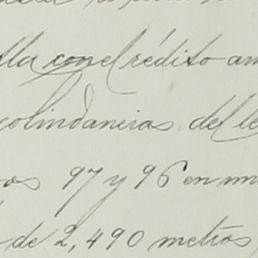 lla con el crédito am
colindancias del le
os 97 y 96 en un
de 2,490 metros,